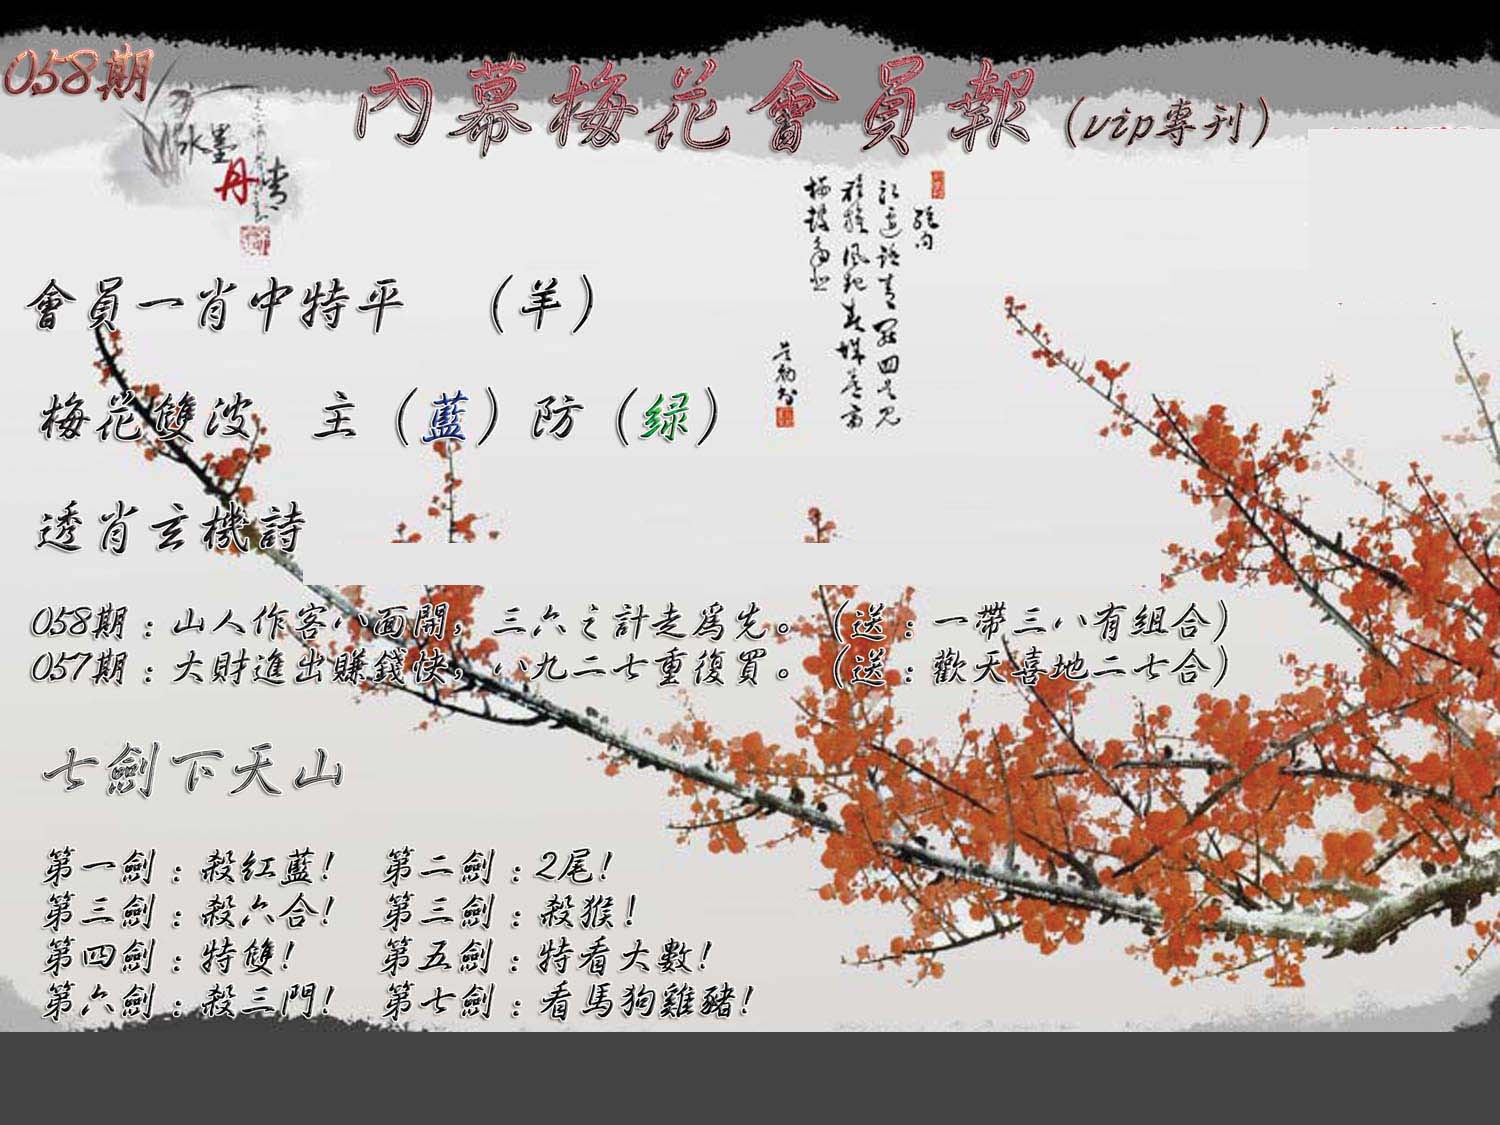 058期
內幕梅花會員報(vip專刊)
水墨
丹青
會員一肖中特平 (羊)
梅花雙波 主(藍)防(绿)
透肖玄機詩
058期:山人作客八面開,三六之計走爲先。(送:一帶三八有組合)
057期:大財進出賺錢快,八九二七重復買。(送:歡天喜地二七合)
七劍下天山
第一劍:殺紅藍! 第二劍:2尾!
第三劍:殺六合! 第三劍:殺猴!
第四劍:特雙! 第五劍:特看大數!
第六劍:殺三門! 第七劍:看馬狗雞豬!